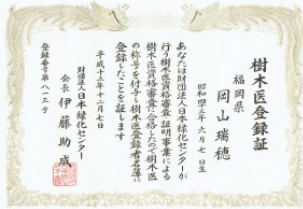 樹木医登録証
福岡県
岡山瑞穂
昭和四三年六月七日生
あなたは財団法人日本緑化センターが
行う樹木医資格審査・証明事業による
樹木医資格審査に合格したので樹木医
の称号を付与し樹木医登録者名簿に
登録したことを証します
平成十三年十二月七日
財団法人日本緑化センター
会長 伊藤助成
登録番号第八一二号